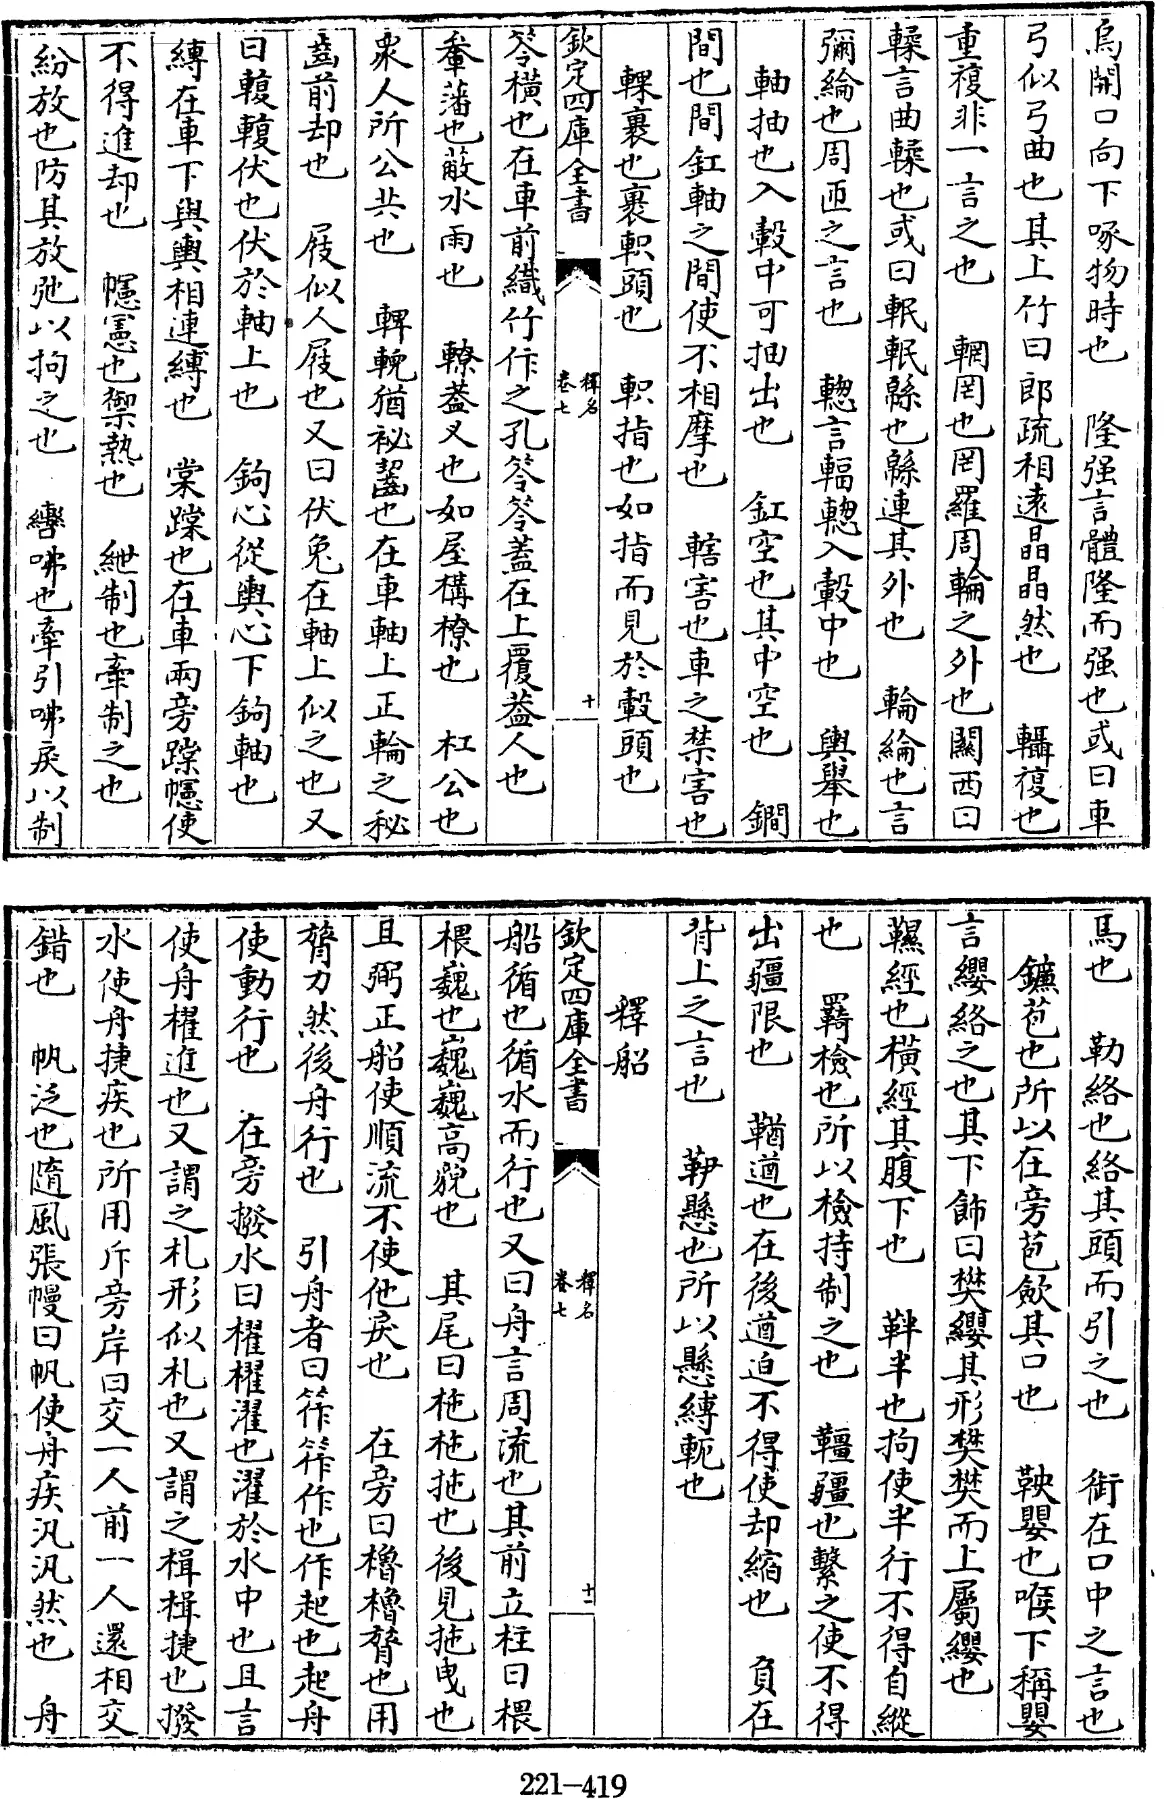 烏開口向下啄物時也　隆强言體隆而强也或曰車
弓似弓曲也其上竹曰郎疏相遠晶晶然也　轓複也
重複非一言之也　輞罔也罔羅周輪之外也關西曰
輮言曲輮也或曰輥輥緜也緜連其外也　輪綸也言
彌綸也周匝之言也　輹言輻輹入轂中也　輿舉也
軸抽也入轂中可抽出也　釭空也其中空也　鐗
間也間釭軸之間使不相摩也　轄害也車之禁害也
輠裹也裹軹頭也　軹指也如指而見於轂頭也
欽定四庫全書　釋名　卷七　十
笭橫也在車前織竹作之孔笭笭蓋在上覆蓋人也
軬藩也蔽水雨也　轑蓋叉也如屋構橑也　杠公也
衆人所公共也　轛輗猶祕齧也在車軸上正輪之秘
齧前却也　屐似人屐也又曰伏兔在軸上似之也又
曰輹輹伏也伏於軸上也　鉤心從輿心下鉤軸也
縛在車下與輿相連縛也　棠蹚也在車兩旁蹚幰使
不得進却也　幰憲也禦熱也　紲制也牽制之也
紛放也防其放弛以拘之也　轡咈也牽引咈戾以制
馬也　勒絡也絡其頭而引之也　銜在口中之言也
鑣苞也所以在旁苞歛其口也　鞅嬰也喉下稱嬰
言纓絡之也其下飾曰樊纓其形樊樊而上屬纓也
韅經也橫經其腹下也　靽半也拘使半行不得自縱
也　羇檢也所以檢持制之也　韁疆也繫之使不得
出疆限也　鞧遒也在後遒迫不得使却縮也　負在
背上之言也　鞙懸也所以懸縛軛也
釋船
欽定四庫全書　釋名　卷七　十一
船循也循水而行也又曰舟言周流也其前立柱曰椳
椳巍也巍巍高貌也　其尾曰柂柂拖也後見拖曳也
且弼正船使順流不使他戾也　在旁曰櫓櫓膂也用
膂力然後舟行也　引舟者曰筰筰作也作起也起舟
使動行也　在旁撥水曰櫂櫂濯也濯於水中也且言
使舟櫂進也又謂之札形似札也又謂之楫楫捷也撥
水使舟捷疾也所用斥旁岸曰交一人前一人還相交
錯也　帆泛也隨風張幔曰帆使舟疾汎汎然也　舟
221-419